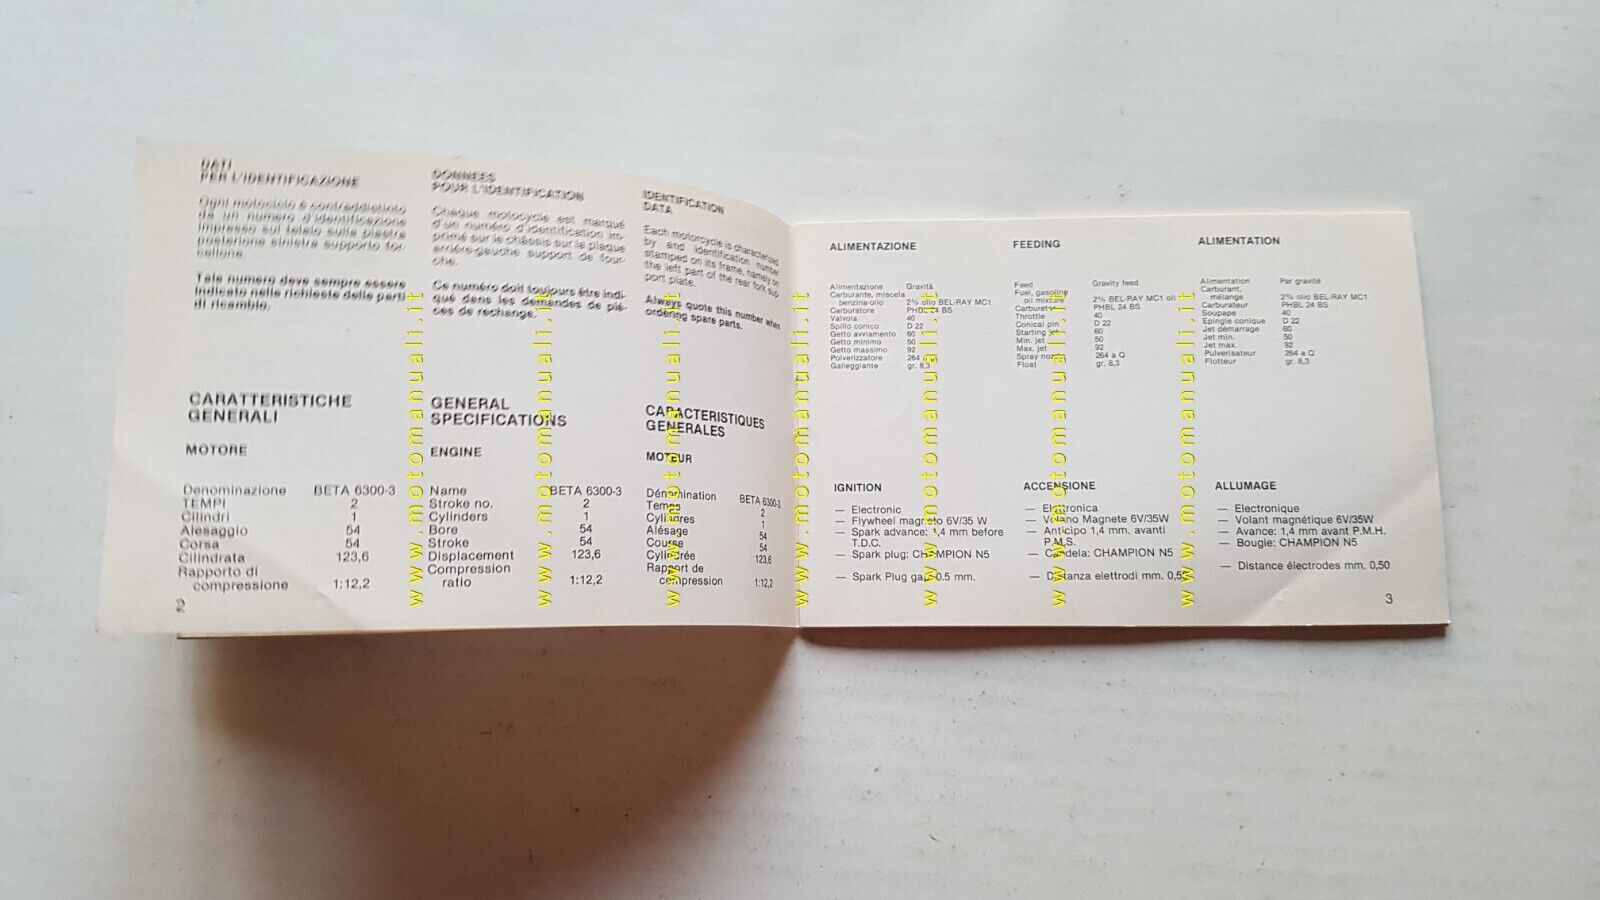 DATI
PER L'IDENTIFICAZIONE
Ogni motociclo è contraddistinto
da un numero d'identificazione
impresso sul telaio sulla piastra
posteriore sinistra supporto for-
cellone.
Tale numero deve sempre essere
indicato nelle richieste delle parti
di ricambio.
CARATTERISTICHE
GENERALI
MOTORE
Denominazione BETA 6300-3
TEMPI 2
Cilindri 1
Alesaggio 54
Corsa 54
Cilindrata 123,6
Rapporto di
compressione 1:12,2
2
DONNEES
POUR L'IDENTIFICATION
Chaque motocycle est marqué
d'un numéro d'identification im-
primé sur le châssis sur la plaque
arrière-gauche support de four-
che.
Ce numéro doit toujours être indi-
qué dans les demandes de piè-
ces de rechange.
GENERAL
SPECIFICATIONS
ENGINE
Name BETA 6300-3
Stroke no. 2
Cylinders 1
Bore 54
Stroke 54
Displacement 123,6
Compression
ratio 1:12,2
IDENTIFICATION
DATA
Each motorcycle is characterized
by and identification number
stamped on its frame, namely on
the left part of the rear fork sup-
port plate.
Always quote this number when
ordering spare parts.
CARACTERISTIQUES
GENERALES
MOTEUR
Dénomination BETA 6300-3
Temps 2
Cylindres 1
Alésage 54
Course 54
Cylindrée 123,6
Rapport de
compression 1:12,2
ALIMENTAZIONE
Alimentazione Gravità
Carburante, miscela
benzina-olio 2% olio BEL-RAY MC1
Carburatore PHBL 24 BS
Valvola 40
Spillo conico D 22
Getto avviamento 60
Getto minimo 50
Getto massimo 92
Polverizzatore 264 a Q
Galleggiante gr. 8,3
FEEDING
Feed Gravity feed
Fuel, gasoline
oil mixture 2% BEL-RAY MC1 oil
Carburetor PHBL 24 BS
Throttle 40
Conical pin D 22
Starting jet 60
Min. jet 50
Max. jet 92
Spray nozzle 264 a Q
Float gr. 8,3
ALIMENTATION
Alimentation Par gravité
Carburant,
mélange 2% olio BEL-RAY MC1
Carburateur PHBL 24 BS
Soupape 40
Epingle conique D 22
Jet démarrage 60
Jet min. 50
Jet max. 92
Pulverisateur 264 a Q
Flotteur gr. 8,3
IGNITION
— Electronic
— Flywheel magneto 6V/35 W
— Spark advance: 1,4 mm before
T.D.C.
— Spark plug: CHAMPION N5
— Spark Plug gap 0.5 mm.
ACCENSIONE
— Elettronica
— Volano Magnete 6V/35W
— Anticipo 1,4 mm. avanti
P.M.S.
— Candela: CHAMPION N5
— Distanza elettrodi mm. 0,5
ALLUMAGE
— Electronique
— Volant magnétique 6V/35W
— Avance: 1,4 mm avant P.M.H.
— Bougie: CHAMPION N5
— Distance électrodes mm. 0,50
3
www.motomanuali.it
www.motomanuali.it
www.motomanuali.it
www.motomanuali.it
www.motomanuali.it
www.motomanuali.it
www.motomanuali.it